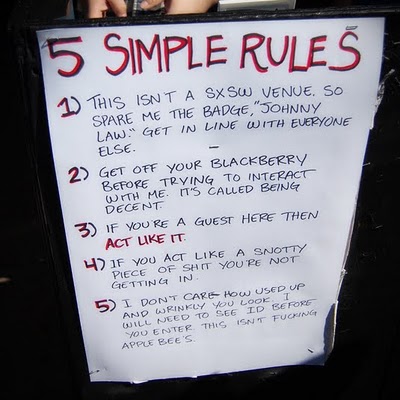 5 SIMPLE RULES
1) THIS ISN'T A SXSW VENUE. SO
SPARE ME THE BADGE, "JOHNNY
LAW." GET IN LINE WITH EVERYONE
ELSE.
2) GET OFF YOUR BLACKBERRY
BEFORE TRYING TO INTERACT
WITH ME. IT'S CALLED BEING
DECENT.
3) IF YOU'RE A GUEST HERE THEN
ACT LIKE IT.
4) IF YOU ACT LIKE A SNOTTY
PIECE OF SHIT YOU'RE NOT
GETTING IN.
5) I DON'T CARE HOW USED UP
AND WRINKLY YOU LOOK. I
WILL NEED TO SEE ID BEFORE
YOU ENTER. THIS ISN'T FUCKING
APPLEBEE'S.